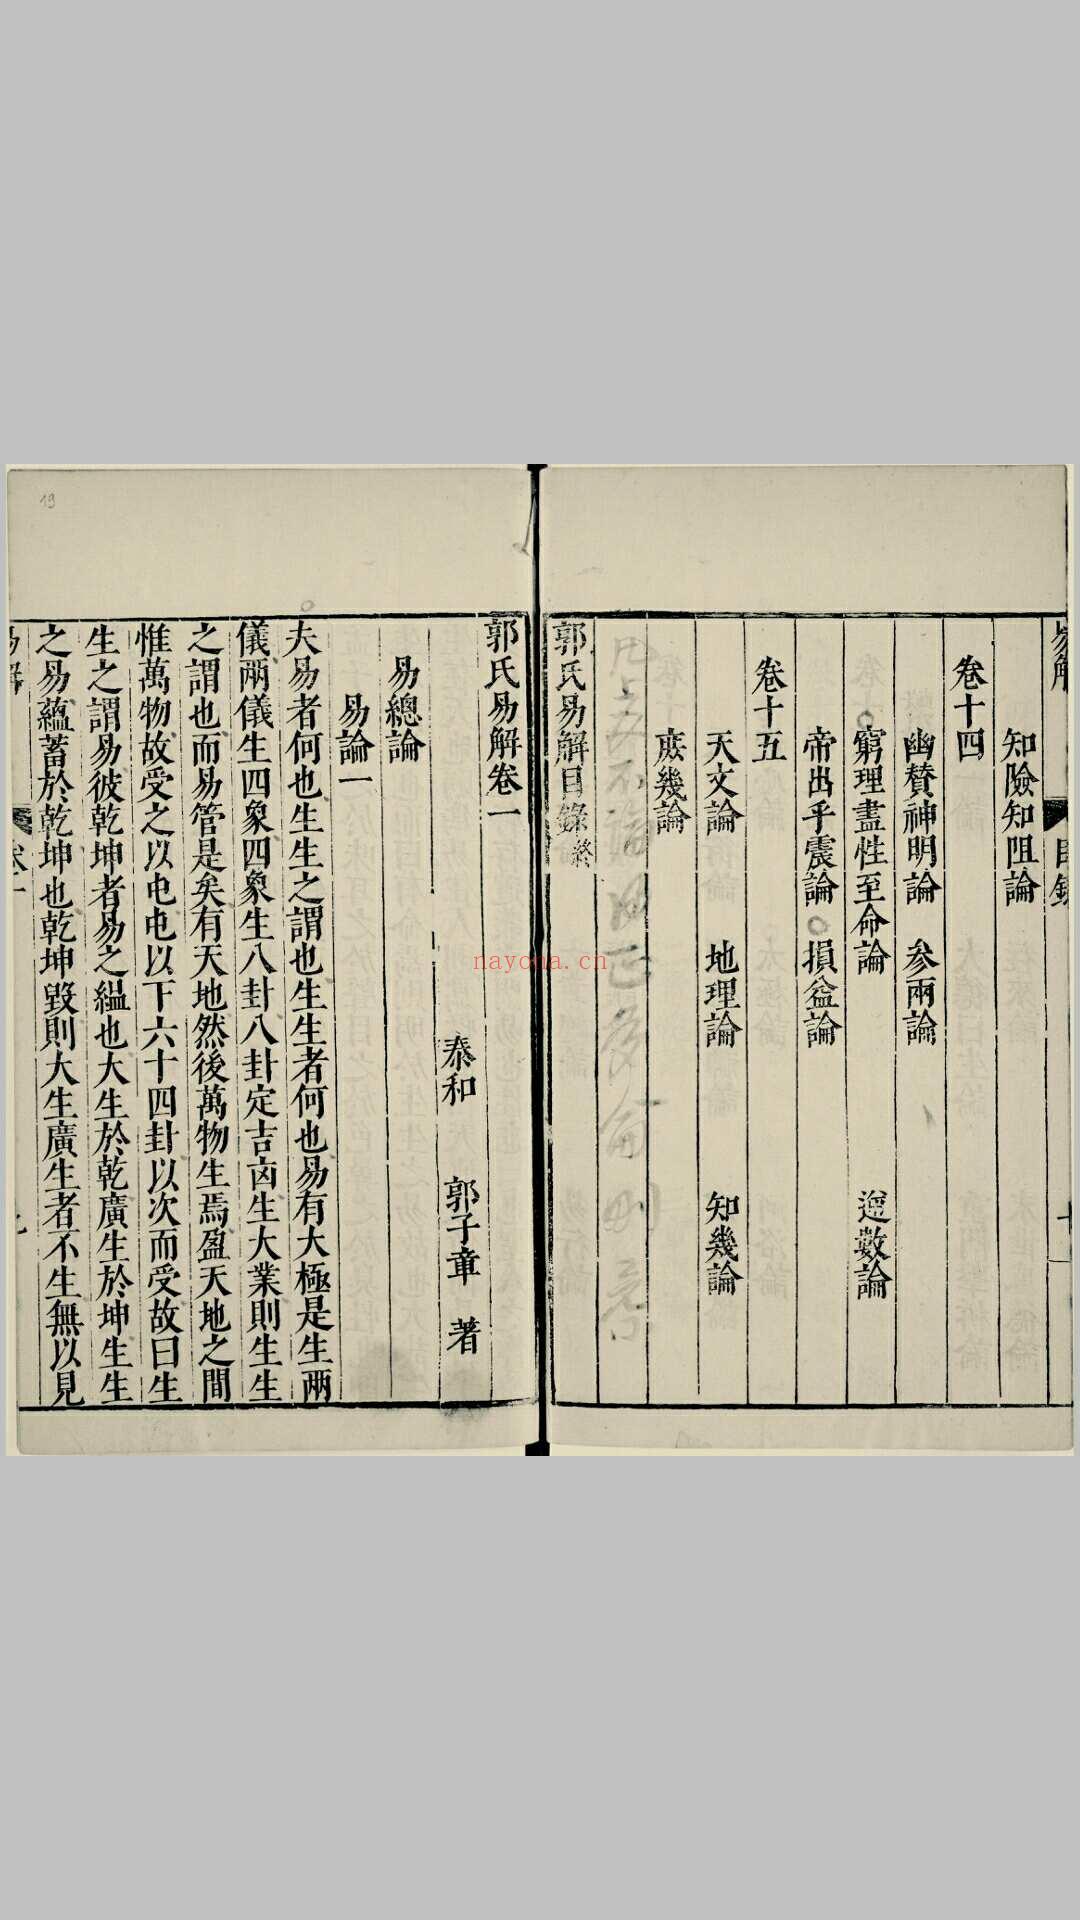 易解
目錄
知險知阻論
卷十四
幽贊神明論 參兩論
窮理盡性至命論 逆數論
帝出乎震論 損益論
卷十五
天文論 地理論 知幾論
庶幾論
郭氏易解目錄終
郭氏易解卷一
泰和 郭子章 著
易總論
易論一
夫易者何也生生之謂也生生者何也易有大極是生兩
儀兩儀生四象四象生八卦八卦定吉凶生大業則生生
之謂也而易管是矣有天地然後萬物生焉盈天地之間
惟萬物故受之以屯屯以下六十四卦以次而受故曰生
生之謂易彼乾坤者易之縕也大生於乾廣生於坤生生
之易蘊蓄於乾坤也乾坤毀則大生廣生者不生無以見
易解
卷一
19
nayona.cn